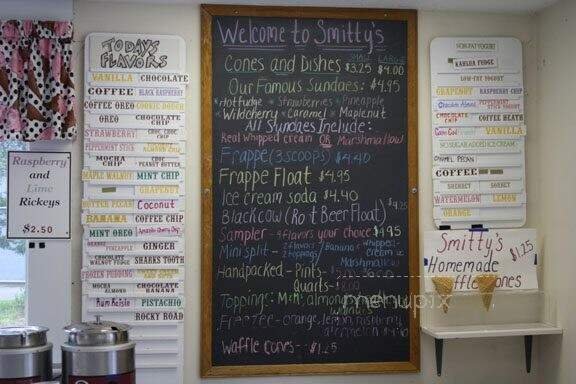 TODAYS
FLAVORS
VANILLA CHOCOLATE
COFFEE BLACK RASPBERRY
COFFEE OREO COOKIE DOUGH
OREO CHOCOLATE CHIP
STRAWBERRY CHOC. CHOC. CHIP
PEPPERMINT STICK ALMOND
MOCHA CHIP CHOC. PEANUT BUTTER
MAPLE WALNUT MINT CHIP
GRAPENUT
BUTTER PECAN Coconut
BANANA COFFEE CHIP
MINT OREO
PINEAPPLE GINGER
CHOCOLATE WALNUT FUDGE SHARKS TOOTH
FROZEN PUDDING
MOCHA ALMOND CHOCOLATE BANANA
Rum Raisin PISTACHIO
ROCKY ROAD
Raspberry
and
Lime
Rickeys
$2.50
Welcome to Smitty's
SMALL LARGE
Cones and Dishes $3.25 $4.00
Our Famous Sundaes: $4.95
Hot fudge Strawberries Pineapple
Wildcherry Caramel Maplenut
All Sundaes Include:
Real whipped cream OR Marshmallow
Frappe (3 scoops) $4.40
Frappe Float $4.95
Ice cream soda $4.40
Black cow (Root Beer Float) $4.25
Sampler - 4 flavors your choice $4.95
Mini split - 2 flavors / 2 toppings / Banana & whipped cream or Marshmallow
Handpacked - Pints -
Quarts - $8.00
Toppings: M&M; almond
walnuts
Freezee - orange, lemon, raspberry,
Waffle cones -- $1.25
menupix
NON-FAT YOGURT
KAHLUA FUDGE
LOW-FAT YOGURT
GRAPENUT RASPBERRY
Chocolate Almond PEPPERMINT STICK
CHOCOLATE CHIP COFFEE HEATH
VANILLA
NO SUGAR ADDED ICE CREAM
CARAMEL PECAN
COFFEE
SHERBET SORBET
WATERMELON LEMON
ORANGE
Smitty's $1.25
Homemade
Waffle Cones